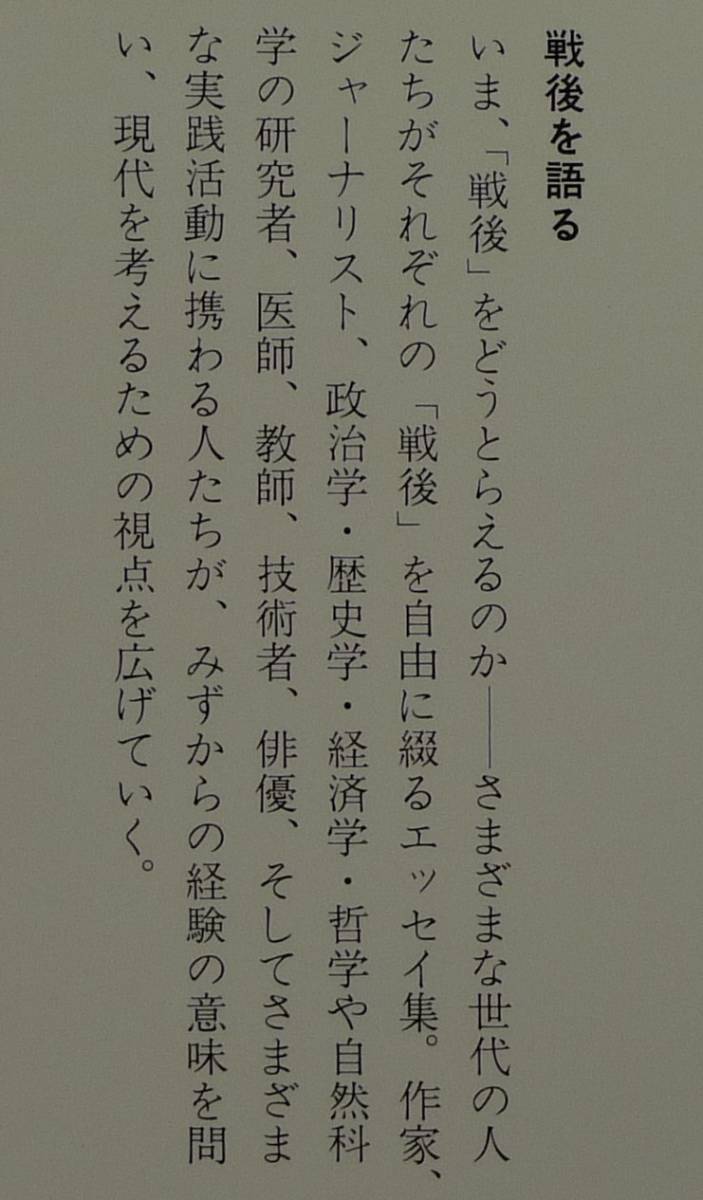 戦後を語る
いま、「戦後」をどうとらえるのか――さまざまな世代の人
たちがそれぞれの「戦後」を自由に綴るエッセイ集。作家、
ジャーナリスト、政治学・歴史学・経済学・哲学や自然科
学の研究者、医師、教師、技術者、俳優、そしてさまざま
な実践活動に携わる人たちが、みずからの経験の意味を問
い、現代を考えるための視点を広げていく。